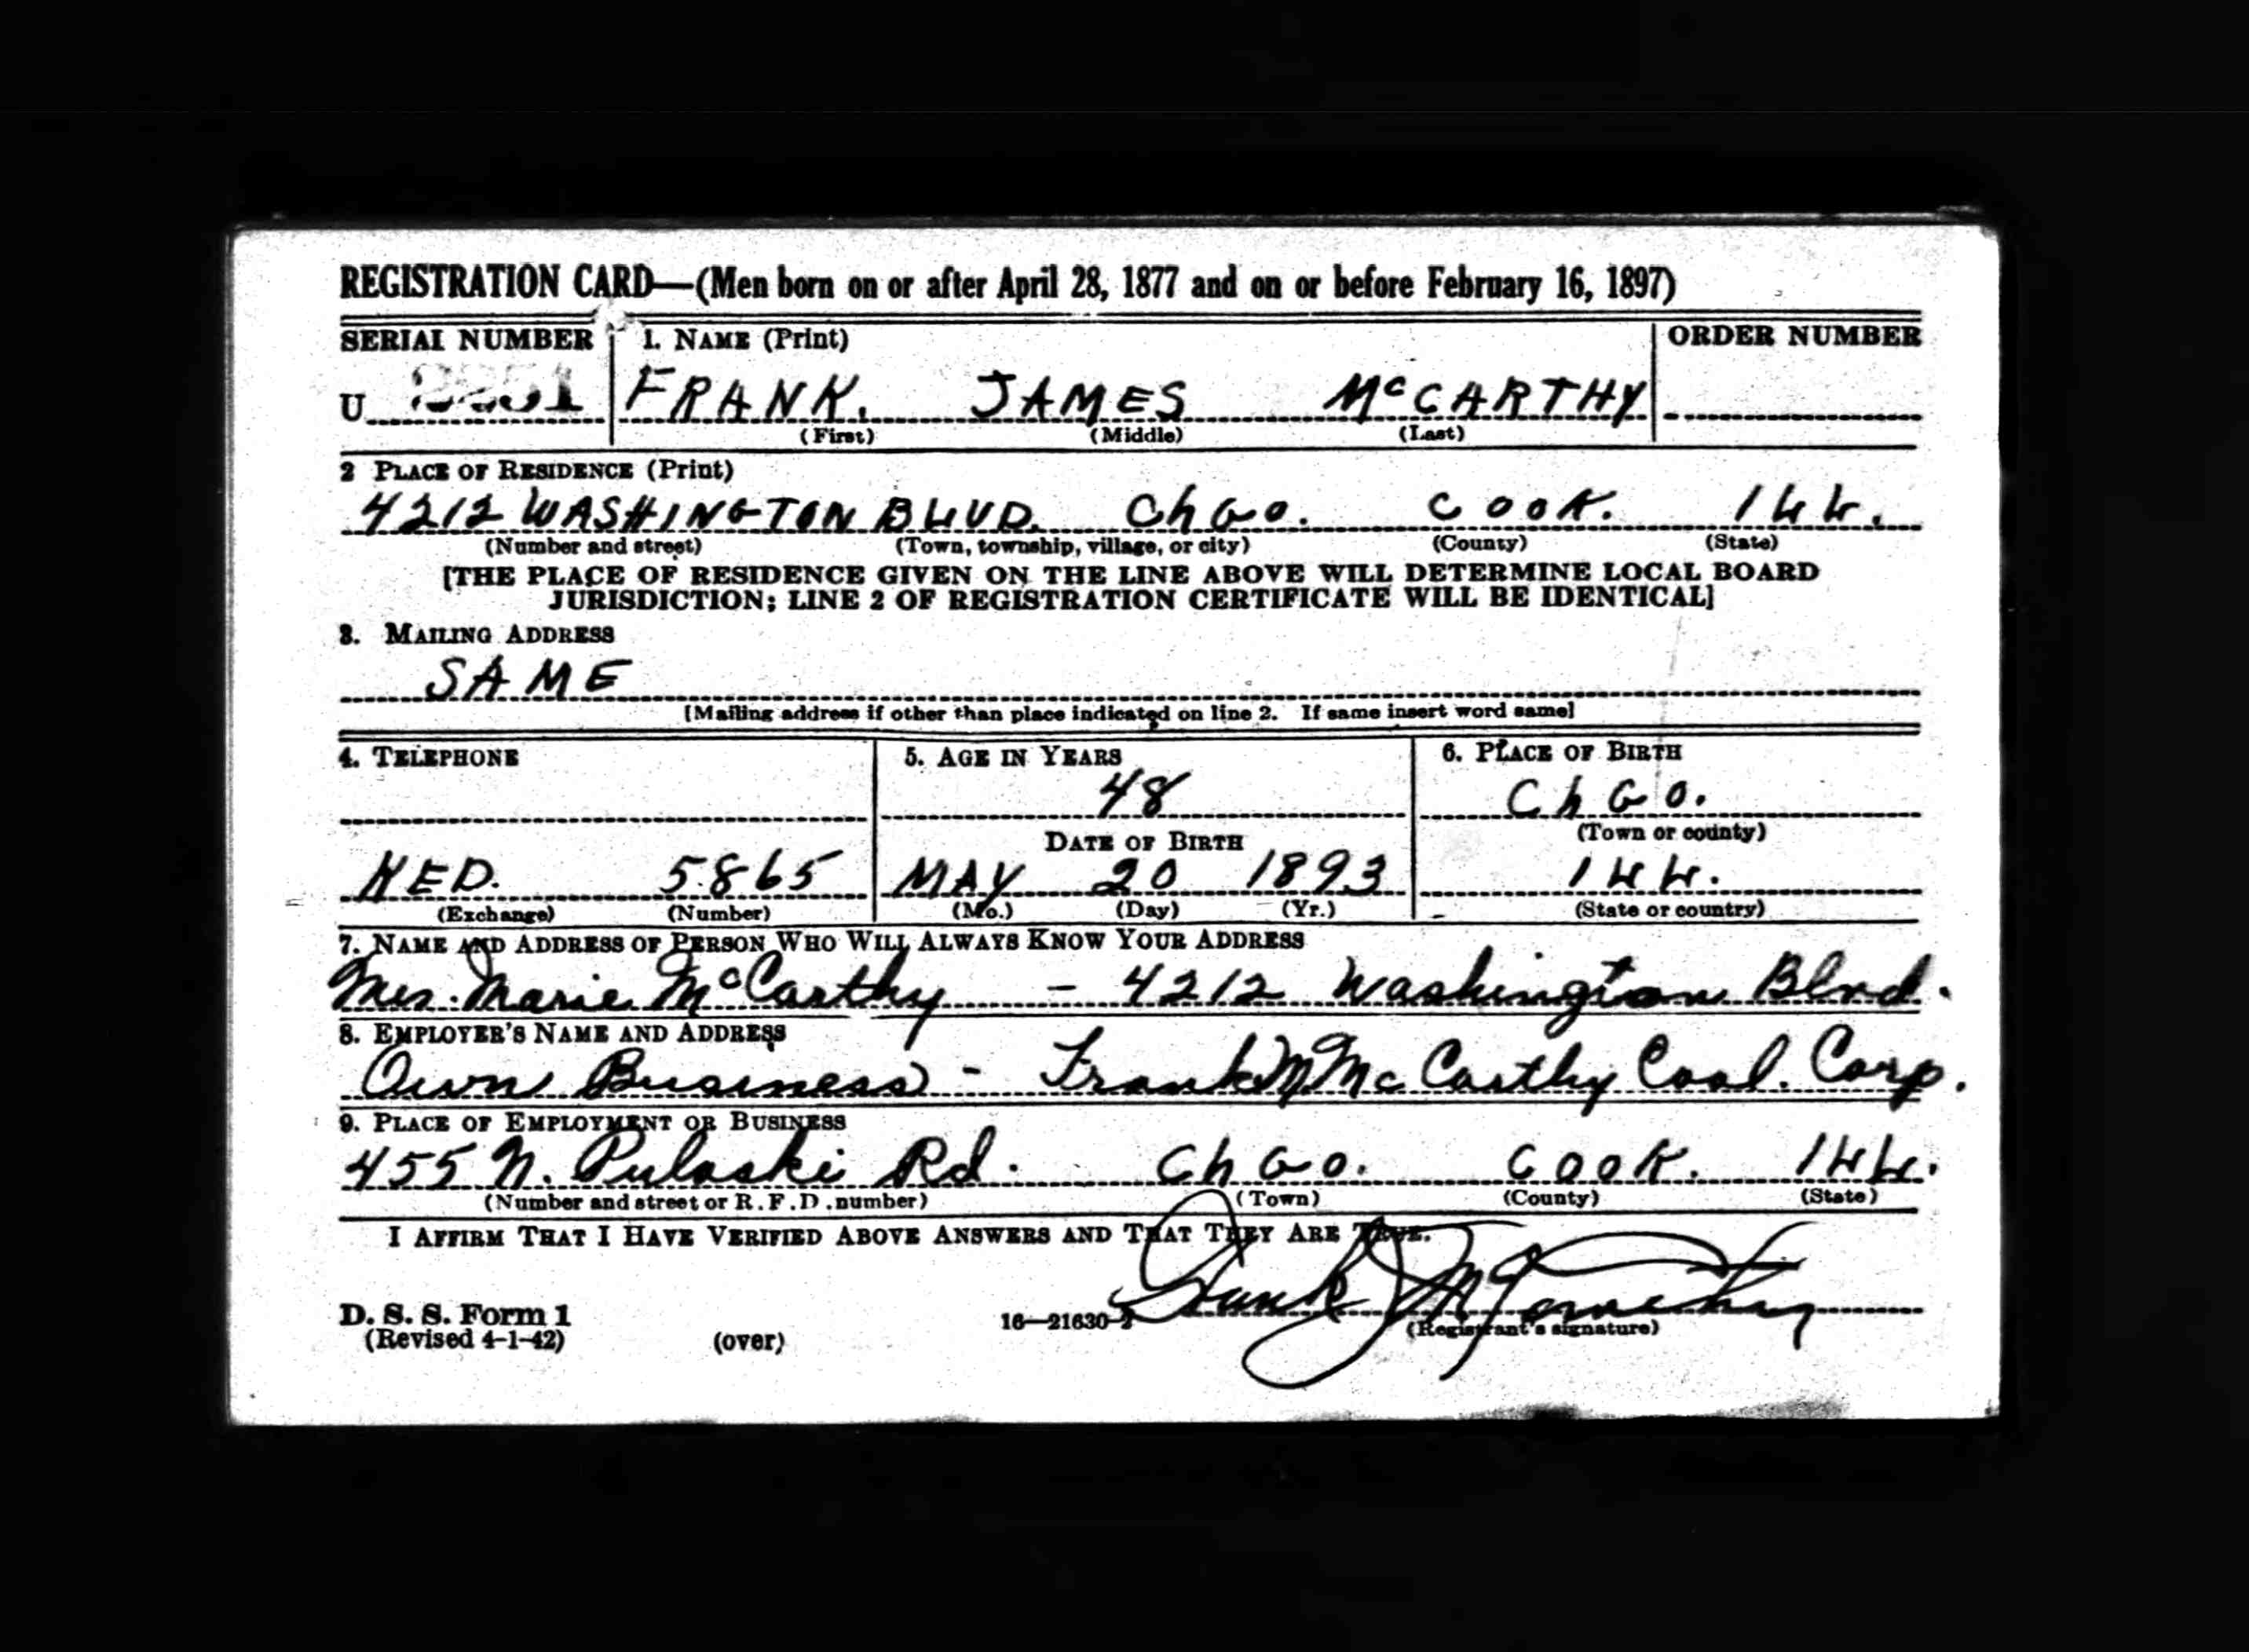 REGISTRATION CARD—(Men born on or after April 28, 1877 and on or before February 16, 1897)
SERIAL NUMBER 1. NAME (Print) ORDER NUMBER
U FRANK. JAMES McCARTHY
(First) (Middle) (Last)
2 PLACE OF RESIDENCE (Print)
4212 WASHINGTON BLVD. ChGo. COOK. ILL.
(Number and street) (Town, township, village, or city) (County) (State)
[THE PLACE OF RESIDENCE GIVEN ON THE LINE ABOVE WILL DETERMINE LOCAL BOARD
JURISDICTION; LINE 2 OF REGISTRATION CERTIFICATE WILL BE IDENTICAL]
3. MAILING ADDRESS
SAME
[Mailing address if other than place indicated on line 2. If same insert word same]
4. TELEPHONE 5. AGE IN YEARS 6. PLACE OF BIRTH
48 ChGo.
DATE OF BIRTH (Town or county)
KED. 5865 MAY 20 1893 ILL.
(Exchange) (Number) (Mo.) (Day) (Yr.) (State or country)
7. NAME AND ADDRESS OF PERSON WHO WILL ALWAYS KNOW YOUR ADDRESS
Mrs. Marie McCarthy - 4212 Washington Blvd.
8. EMPLOYER'S NAME AND ADDRESS
Own Business - Frank McCarthy Coal. Corp.
9. PLACE OF EMPLOYMENT OR BUSINESS
455 N. Pulaski Rd. ChGo. COOK. ILL.
(Number and street or R.F.D. number) (Town) (County) (State)
I AFFIRM THAT I HAVE VERIFIED ABOVE ANSWERS AND THAT THEY ARE TRUE.
Frank J McCarthy
D. S. S. Form 1 16—21630-2 (Registrant's signature)
(Revised 4-1-42) (over)